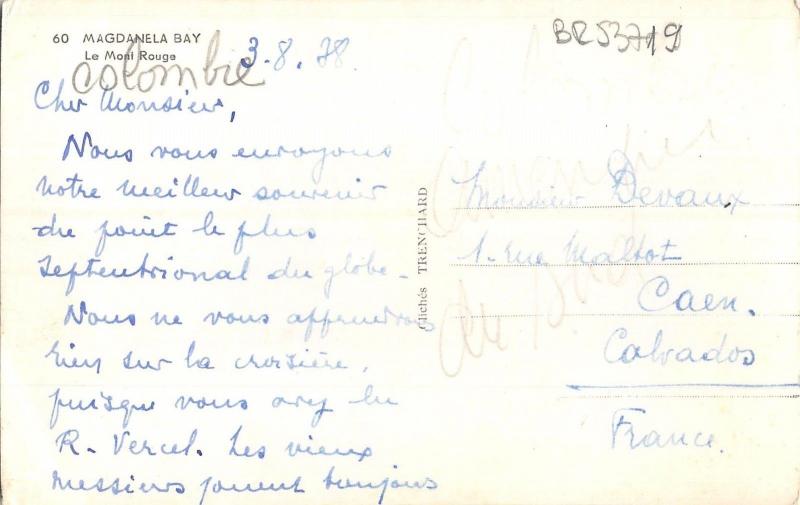 60 MAGDANELA BAY
Le Mont Rouge
BR53719
colombie
3.8.38
Cher Monsieur,
Nous vous envoyons
notre meilleur souvenir
du point le plus
septentrional du globe.
Nous ne vous apprendrons
rien sur la croisière,
puisque vous avez lu
R. Vercel. Les vieux
messieurs jouent toujours
Clichés TRENCHARD
Monsieur Devaux
1. rue Maltot
Caen.
Calvados
France.